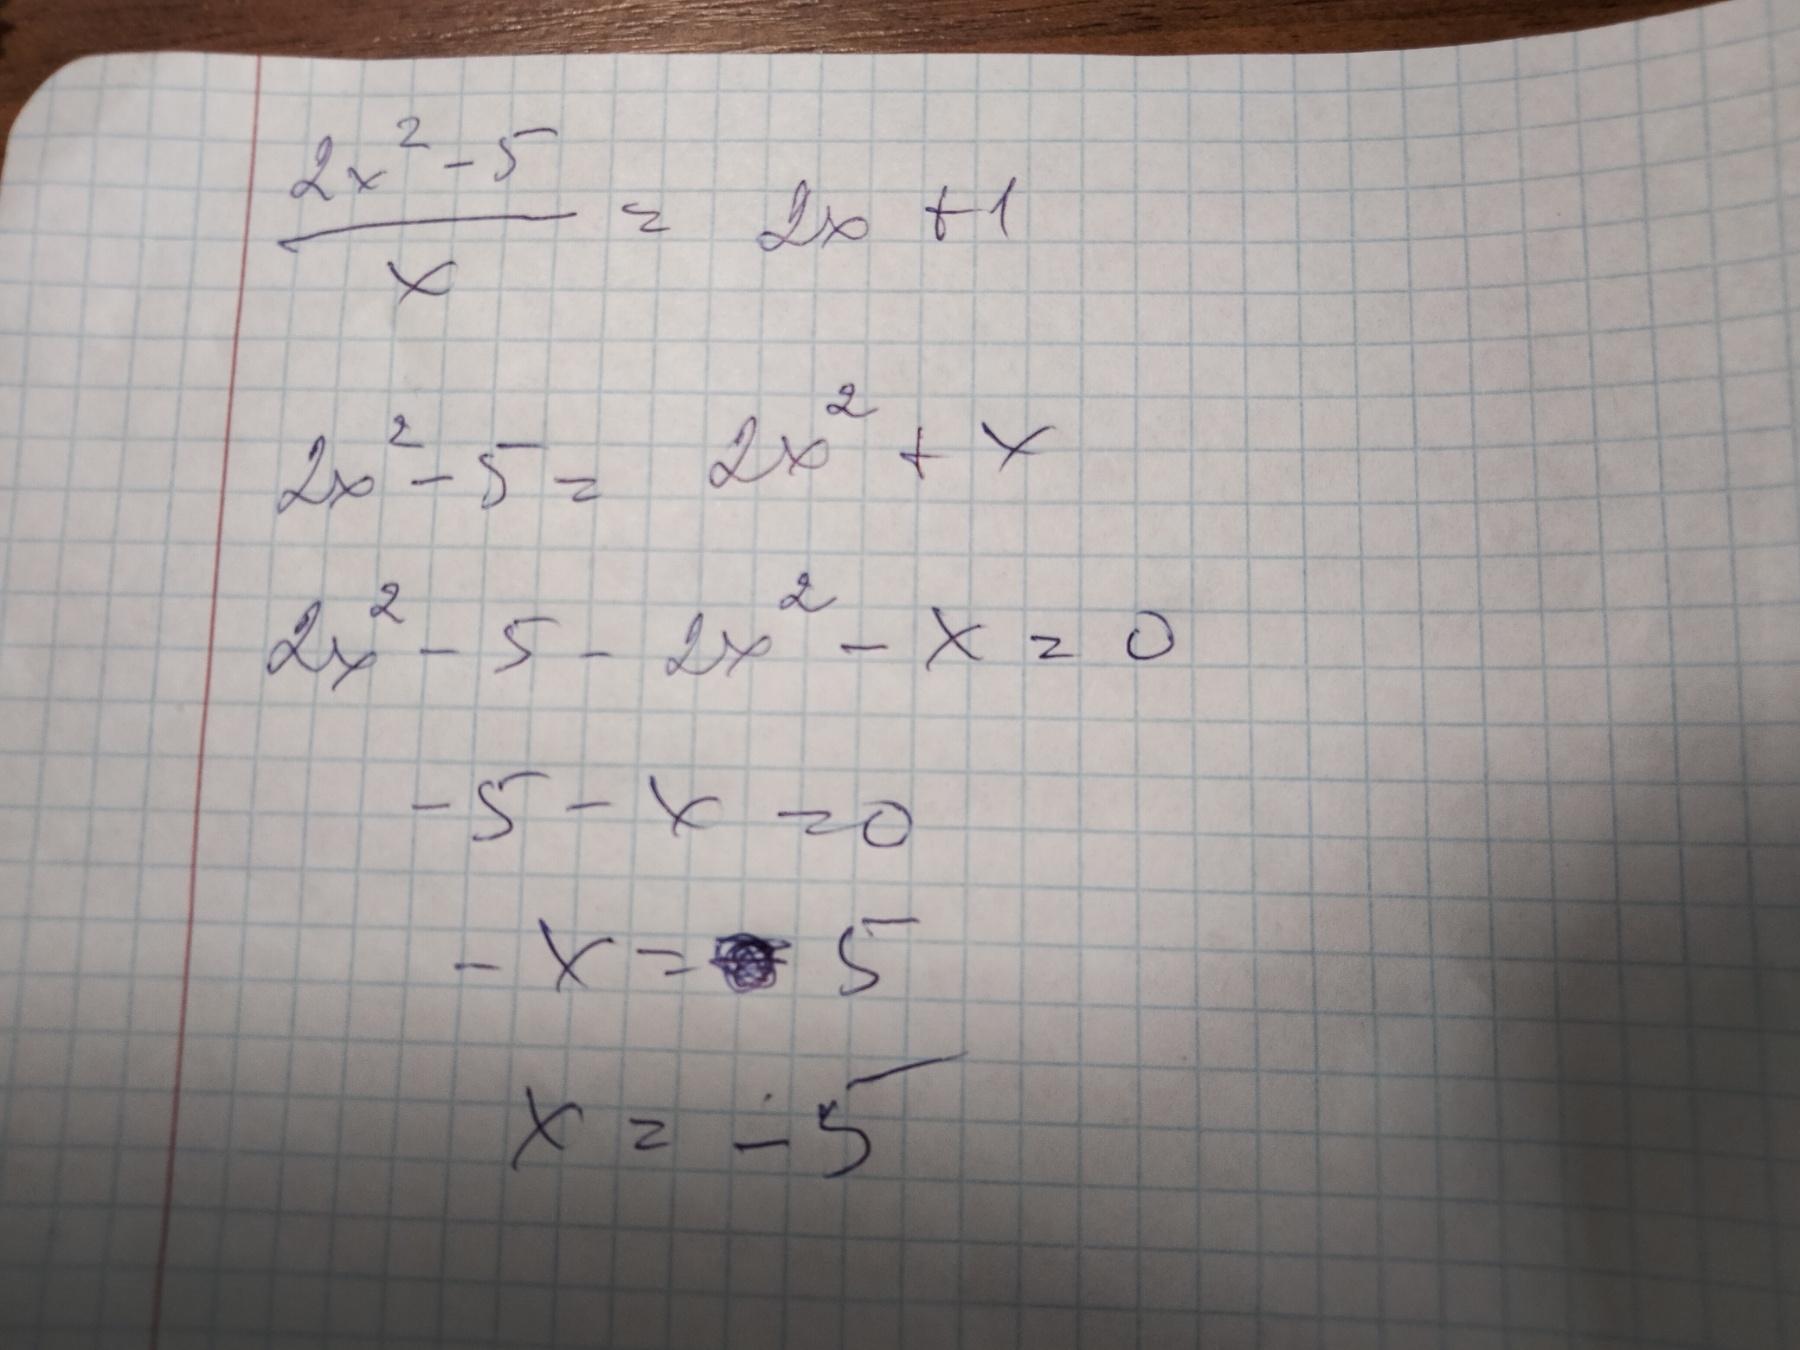 (2x² - 5)/x = 2x + 1
2x² - 5 = 2x² + x
2x² - 5 - 2x² - x = 0
-5 - x = 0
-x = 5
x = -5